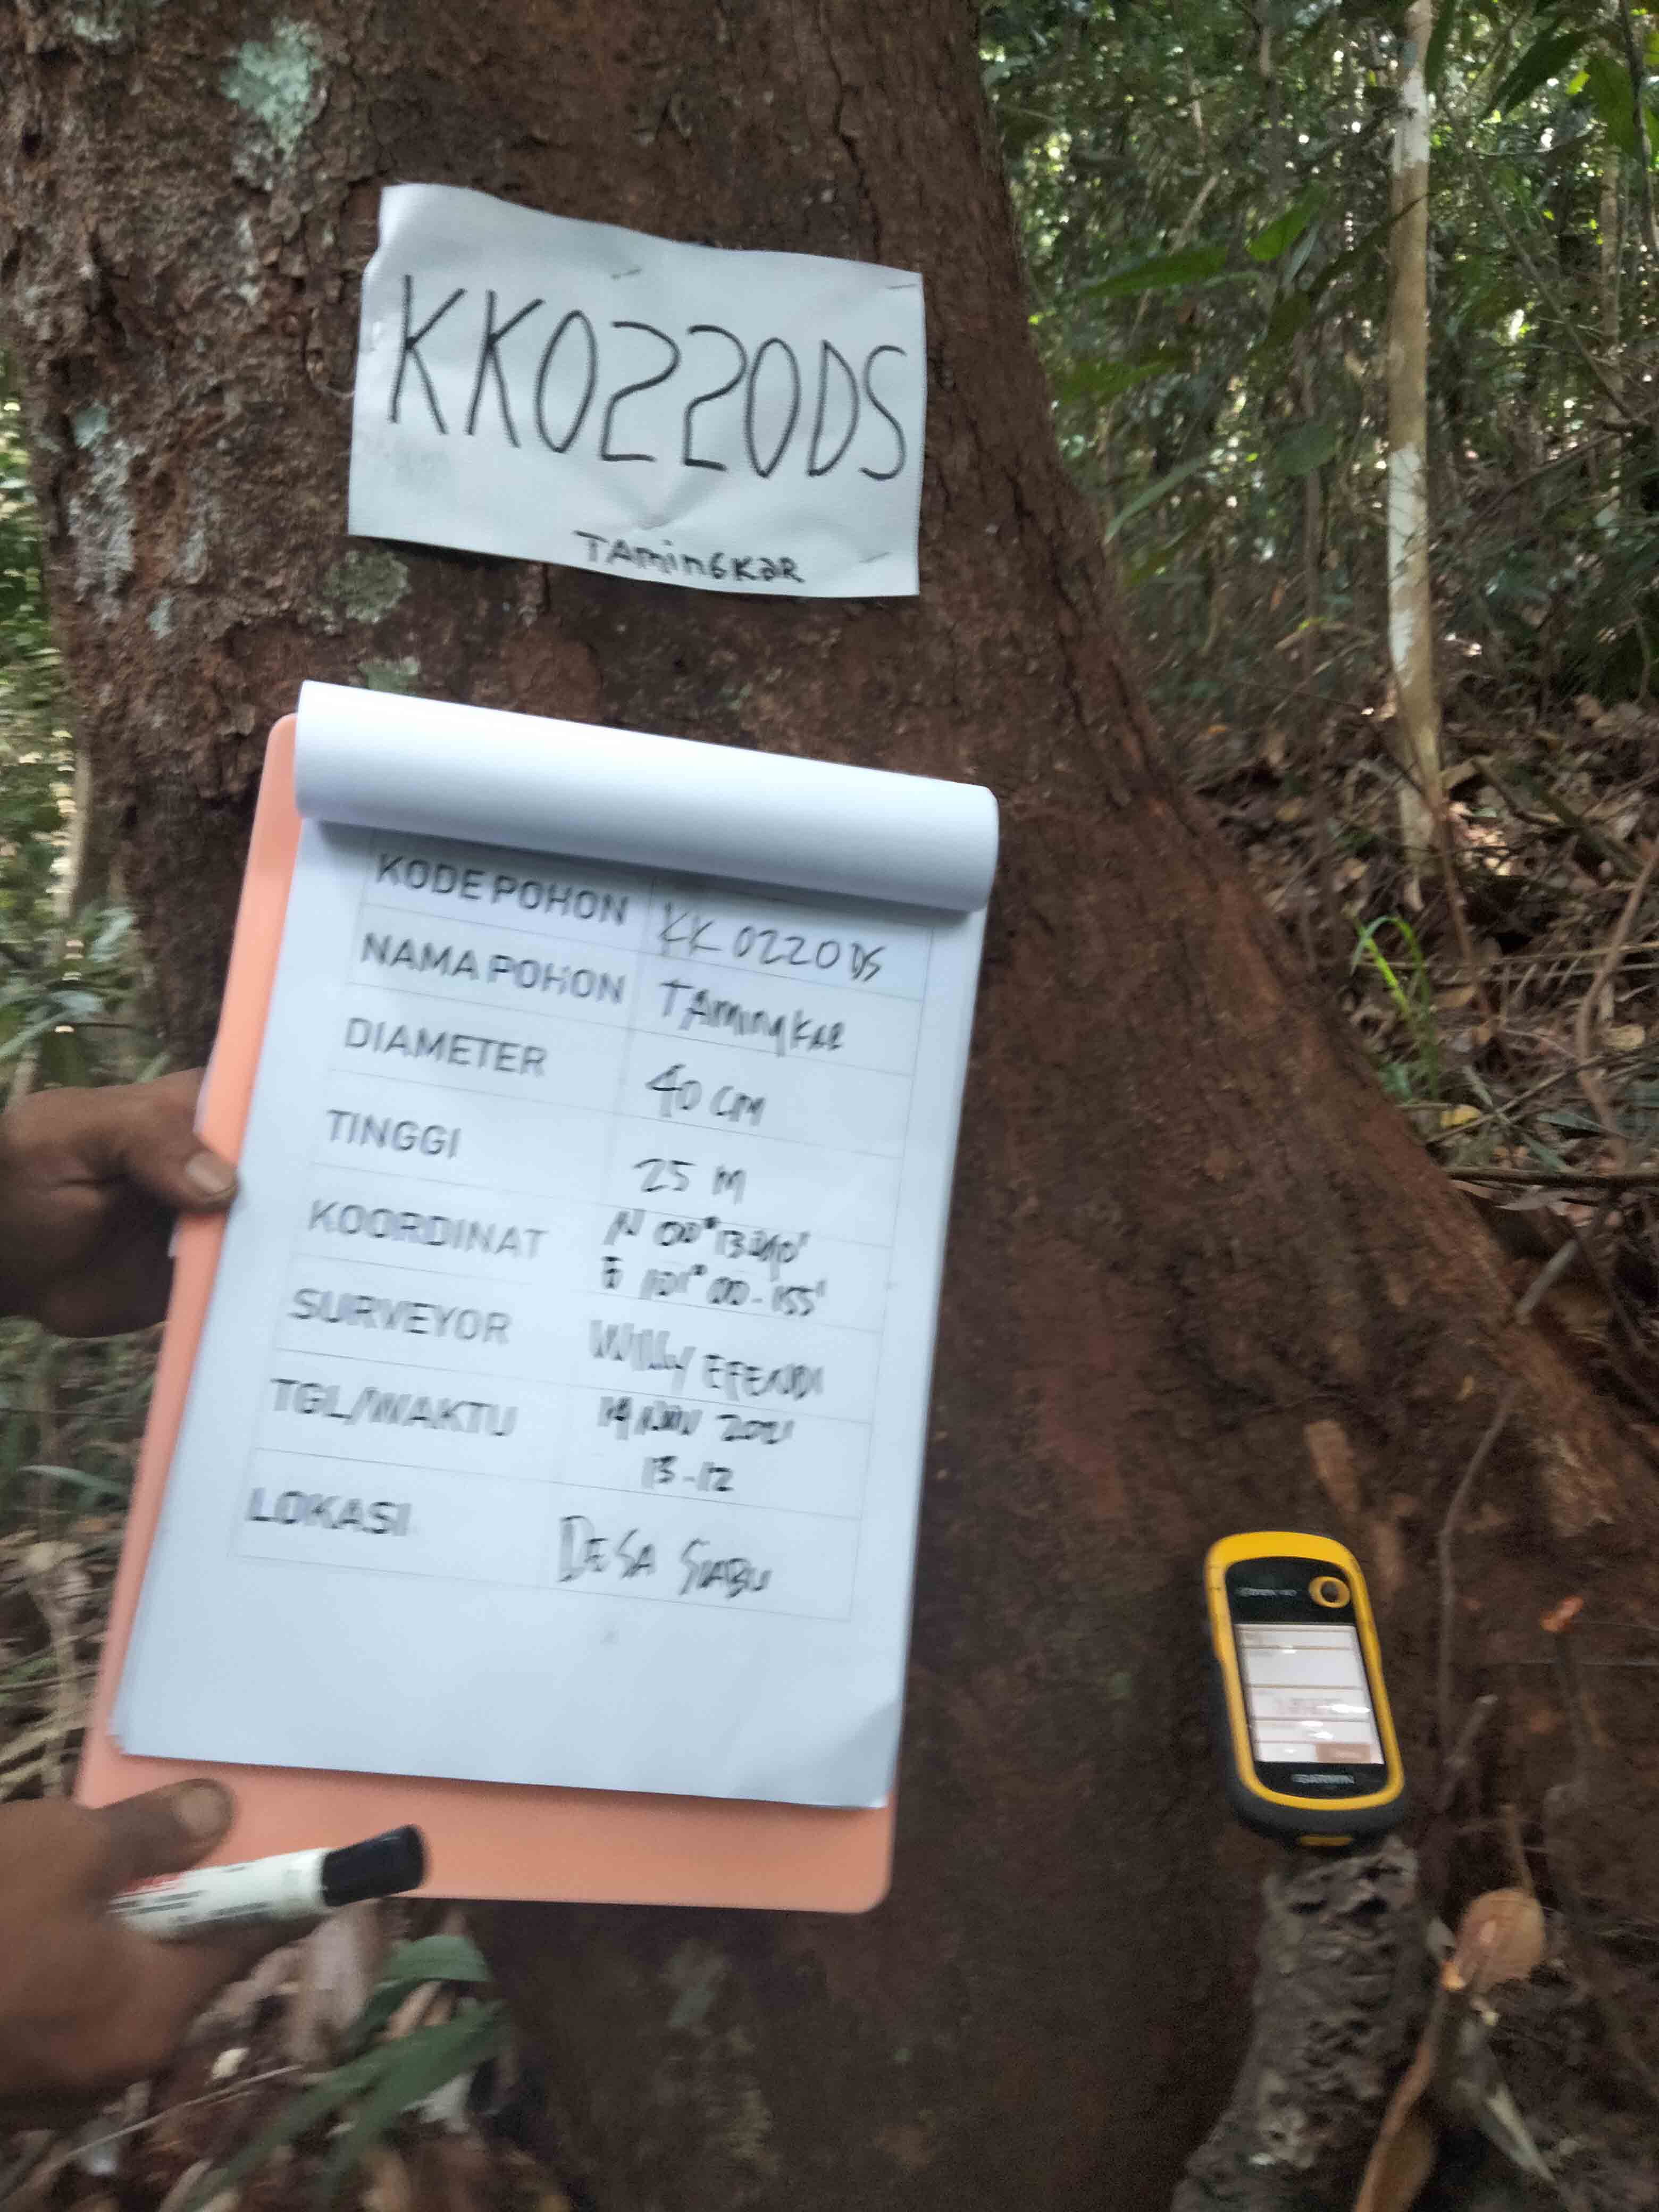 KK0220DS
TAmingkaR
KODE POHON KK 0220 DS
NAMA POHON TAmingkAR
DIAMETER 40 CM
TINGGI 25 M
KOORDINAT N 00°
E 101° 00-155'
SURVEYOR Willy EFENDI
TGL/WAKTU 14 2021
13-12
LOKASI DESA SIABU
GARMIN